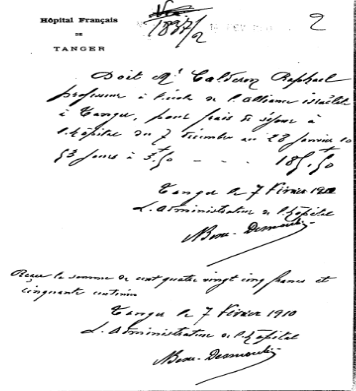 Hôpital Français
DE
TANGER
1837/2
2
Doit Mr Calderon Raphael
professeur à l'école de l'Alliance israélite
à Tanger, pour frais de séjour à
l'hôpital du 7 décembre au 28 janvier 10
53 jours à 3f.50 - - - 185f.50
Tanger le 7 Février 1910
L'administrateur de l'hôpital
Reçu la somme de cent quatre vingt cinq francs et
cinquante centimes
Tanger le 7 Février 1910
L'administrateur de l'hôpital